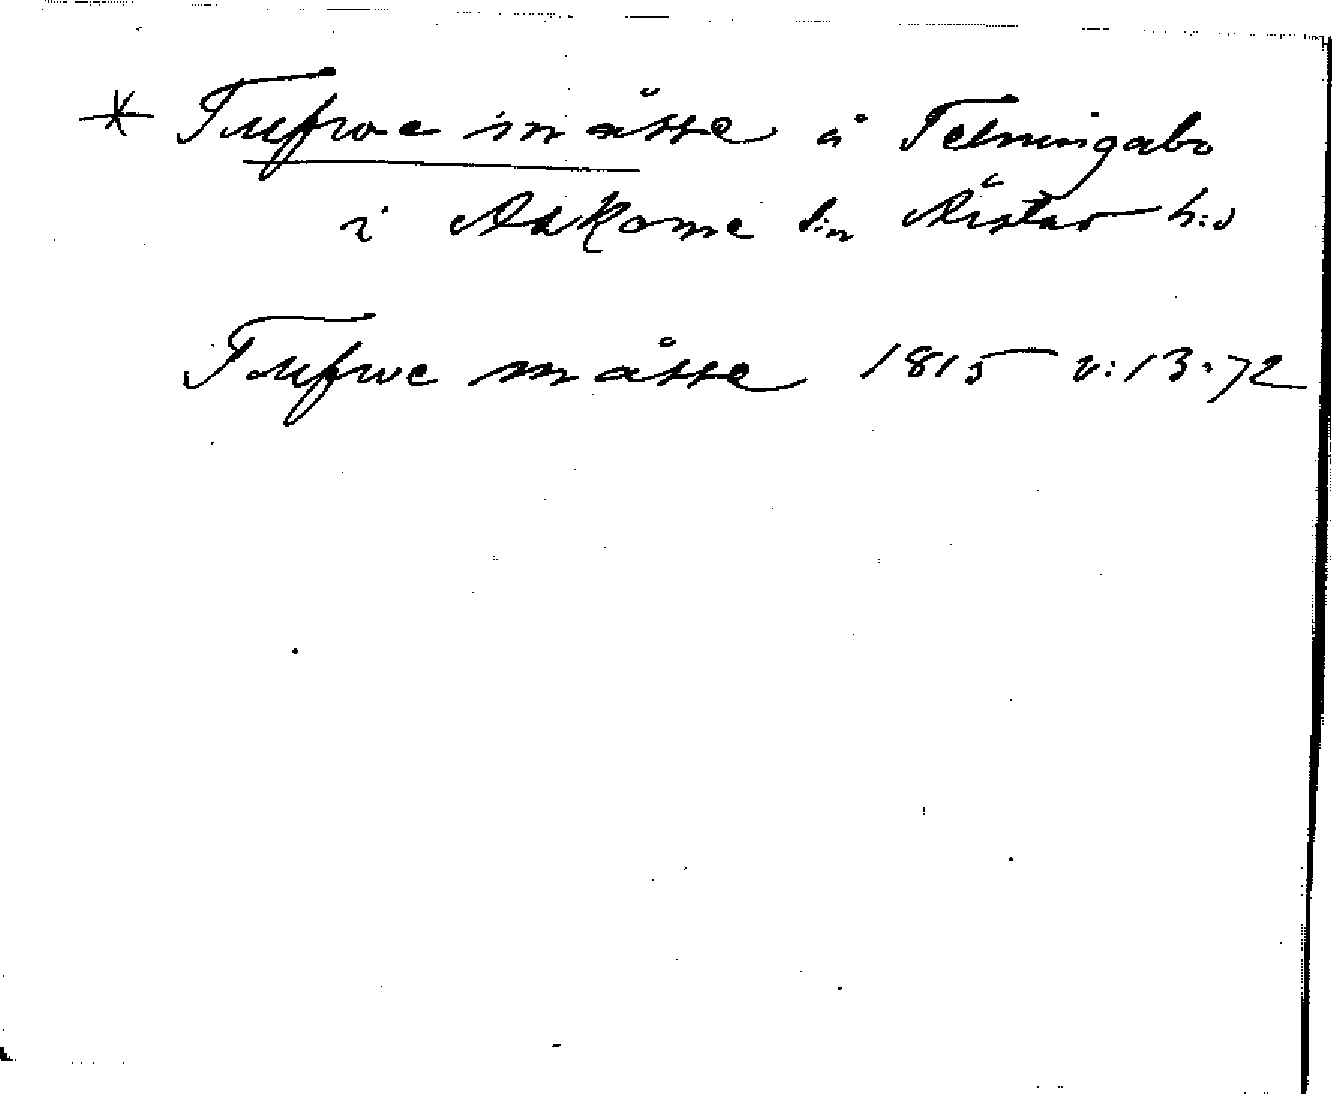 * Tufwe måsse å Telningabo
i Askome sn Årstad h:d
Tufwe måsse 1815 v: 13:72